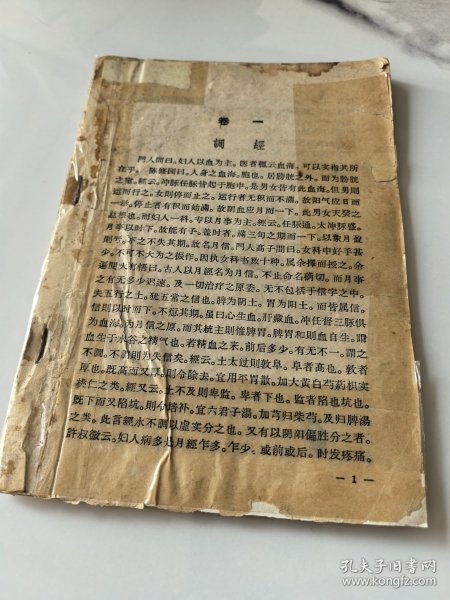 卷一
調經
門人問曰。妇人以血为主。医者輒云血海。可以实指其所
在乎。陈修园曰。人身之血海。胞也。居膀胱之外。而为膀胱
之室。經云。冲脉任脉皆起于胞中。是男女皆有此血海。但男则
运而行之。女则停而止之。运行者无积而不满。故阳气应日而
一举。停止者有积而始满。故阴血应月而一下。此男女天癸之
总想也。而妇人一科。专以月事为主。經云。任脉通。太冲脉盛。
月事以时下。故能有子。盖时者。满三旬之期而一下。以象月盈
则亏。下之不失其期。故名月信。門人高子問曰。女科中好手甚
少。不可不大为之振作。因执女科书数十种。属余择而授之。余
遍閱大有悟曰。古人以月經名为月信。不止命名确切。而月事
之有无多少迟速。及一切治疗之原委。无不包括于信字之中。
夫五行之土。犹五常之信也。脾为阴土。胃为阳土。而皆属信。
信则以时而下。不愆其期。虽曰心生血。肝藏血。冲任督三脉俱
为血海。为月信之原。而其統主则惟脾胃。脾胃和则血自生。謂
血生于水谷之精气也。若精血之来。前后多少。有无不一。謂之
不調。不調则为失信矣。經云。土太过则敦阜。阜者高也。敦者
厚也。既高而又厚。则令除去。宜用平胃散。加大黄白芍药枳实
桃仁之类。經又云。土不及则卑监。卑者下也。监者陷也坑也。
既下而又陷坑。则令培补。宜六君子湯。加芎归柴芍。及归脾湯
之类。此言經水不調以虚实分之也。又有以阴阳偏胜分之者。
許叔微云。妇人病多是月經乍多。乍少。或前或后。时发疼痛。
— 1 —
孔夫子旧书网
www.kongfz.com